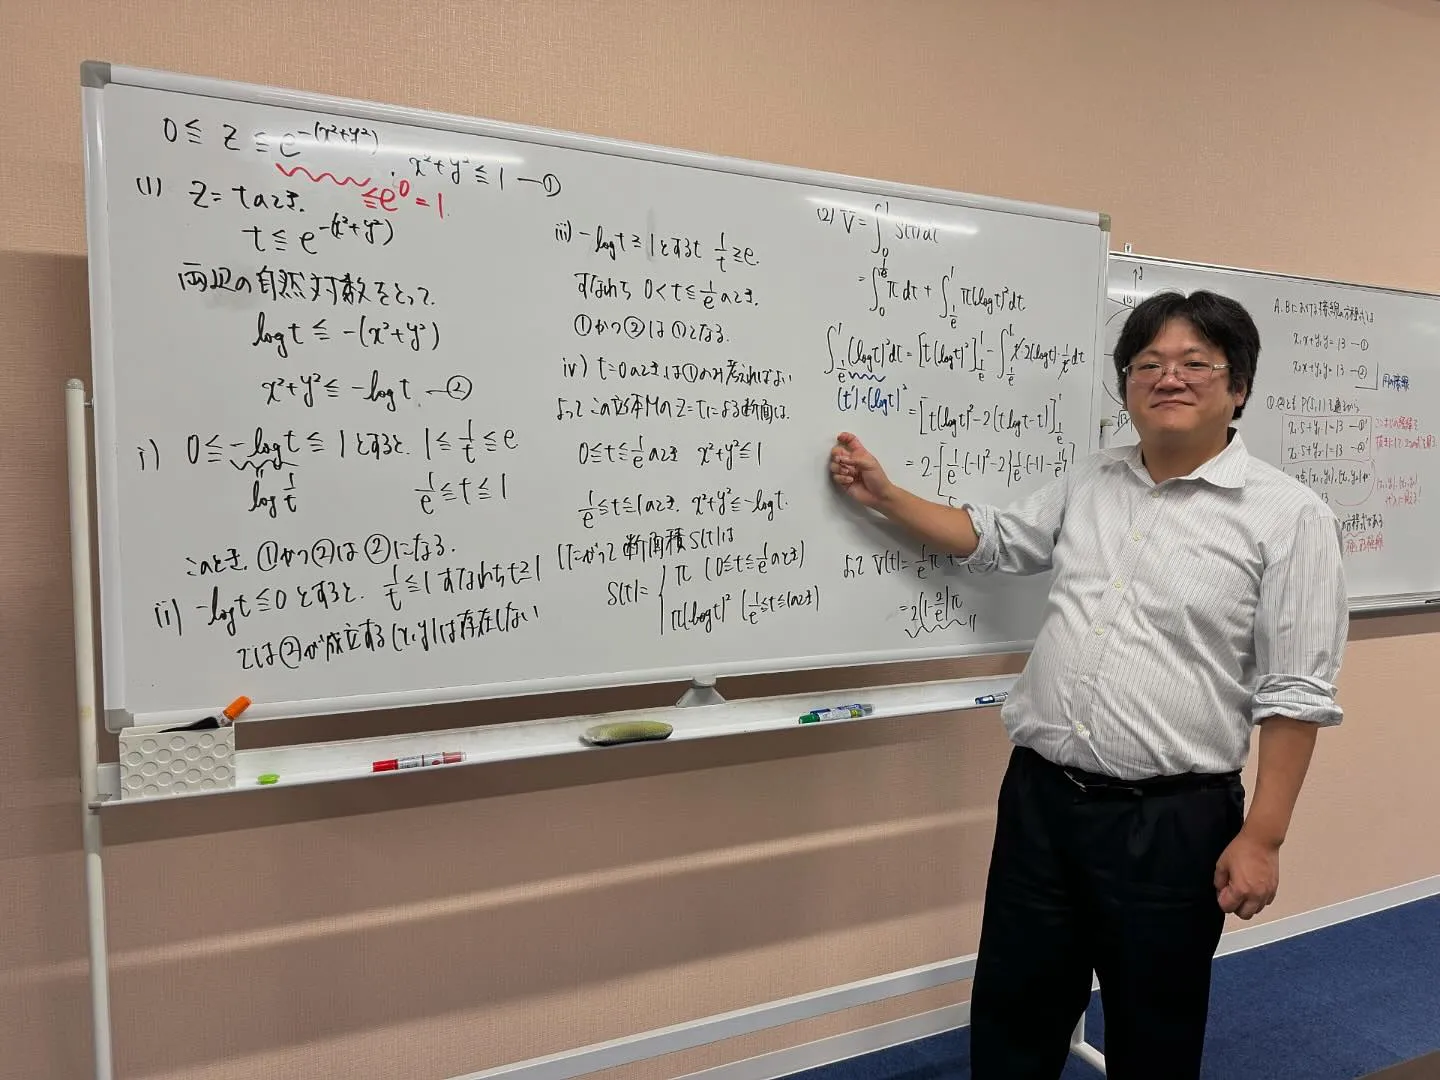 0 ≦ z ≦ e^{-(x²+y²)}, x²+y² ≦ 1 ―①
≦ e⁰ = 1.
(1) z = t のとき.
t ≦ e^{-(x²+y²)}
両辺の自然対数をとって.
log t ≦ -(x²+y²)
x²+y² ≦ -log t ―②
i) 0 ≦ -log t ≦ 1 とすると. 1 ≦ 1/t ≦ e
log 1/t
1/e ≦ t ≦ 1
このとき, ①かつ②は②になる.
ii) -log t ≦ 0 とすると. 1/t ≦ 1 すなわち t ≧ 1
では②が成立する(x,y)は存在しない
iii) -log t ≧ 1 とすると 1/t ≧ e.
すなわち 0 < t ≦ 1/e のとき.
①かつ②は①となる.
iv) t = 0 のときは①のみ考えればよい
よってこの立体Mのz=tによる断面は.
0 ≦ t ≦ 1/e のとき x²+y² ≦ 1
1/e ≦ t ≦ 1 のとき. x²+y² ≦ -log t.
したがって断面積S(t)は
S(t) = { π (0 ≦ t ≦ 1/e のとき)
π(log t)² (1/e ≦ t ≦ 1 のとき)
(2) V = ∫₀¹ S(t) dt
= ∫₀^{1/e} π dt + ∫_{1/e}^1 π(log t)² dt.
∫_{1/e}^1 (log t)² dt = [t(log t)²]_{1/e}^1 - ∫_{1/e}^1 t·2(log t)·1/t dt
(t')×(log t)²
= [t(log t)² - 2(t log t - t)]_{1/e}^1
= 2 - [1/e·(-1)² - 2{1/e·(-1) - 1/e}]
よって V(t) = 1/e π +
= 2(1 - 2/e)π
A, Bにおける接線の方程式は
x₁x + y₁y = 13 ―①
x₂x + y₂y = 13 ―②
①,②とも P(5,1) を通るから
x₁·5 + y₁·1 = 13 ―①'
x₂·5 + y₂·1 = 13 ―②'
(x₁,y₁), (x₂,y₂)
13
の方程式である